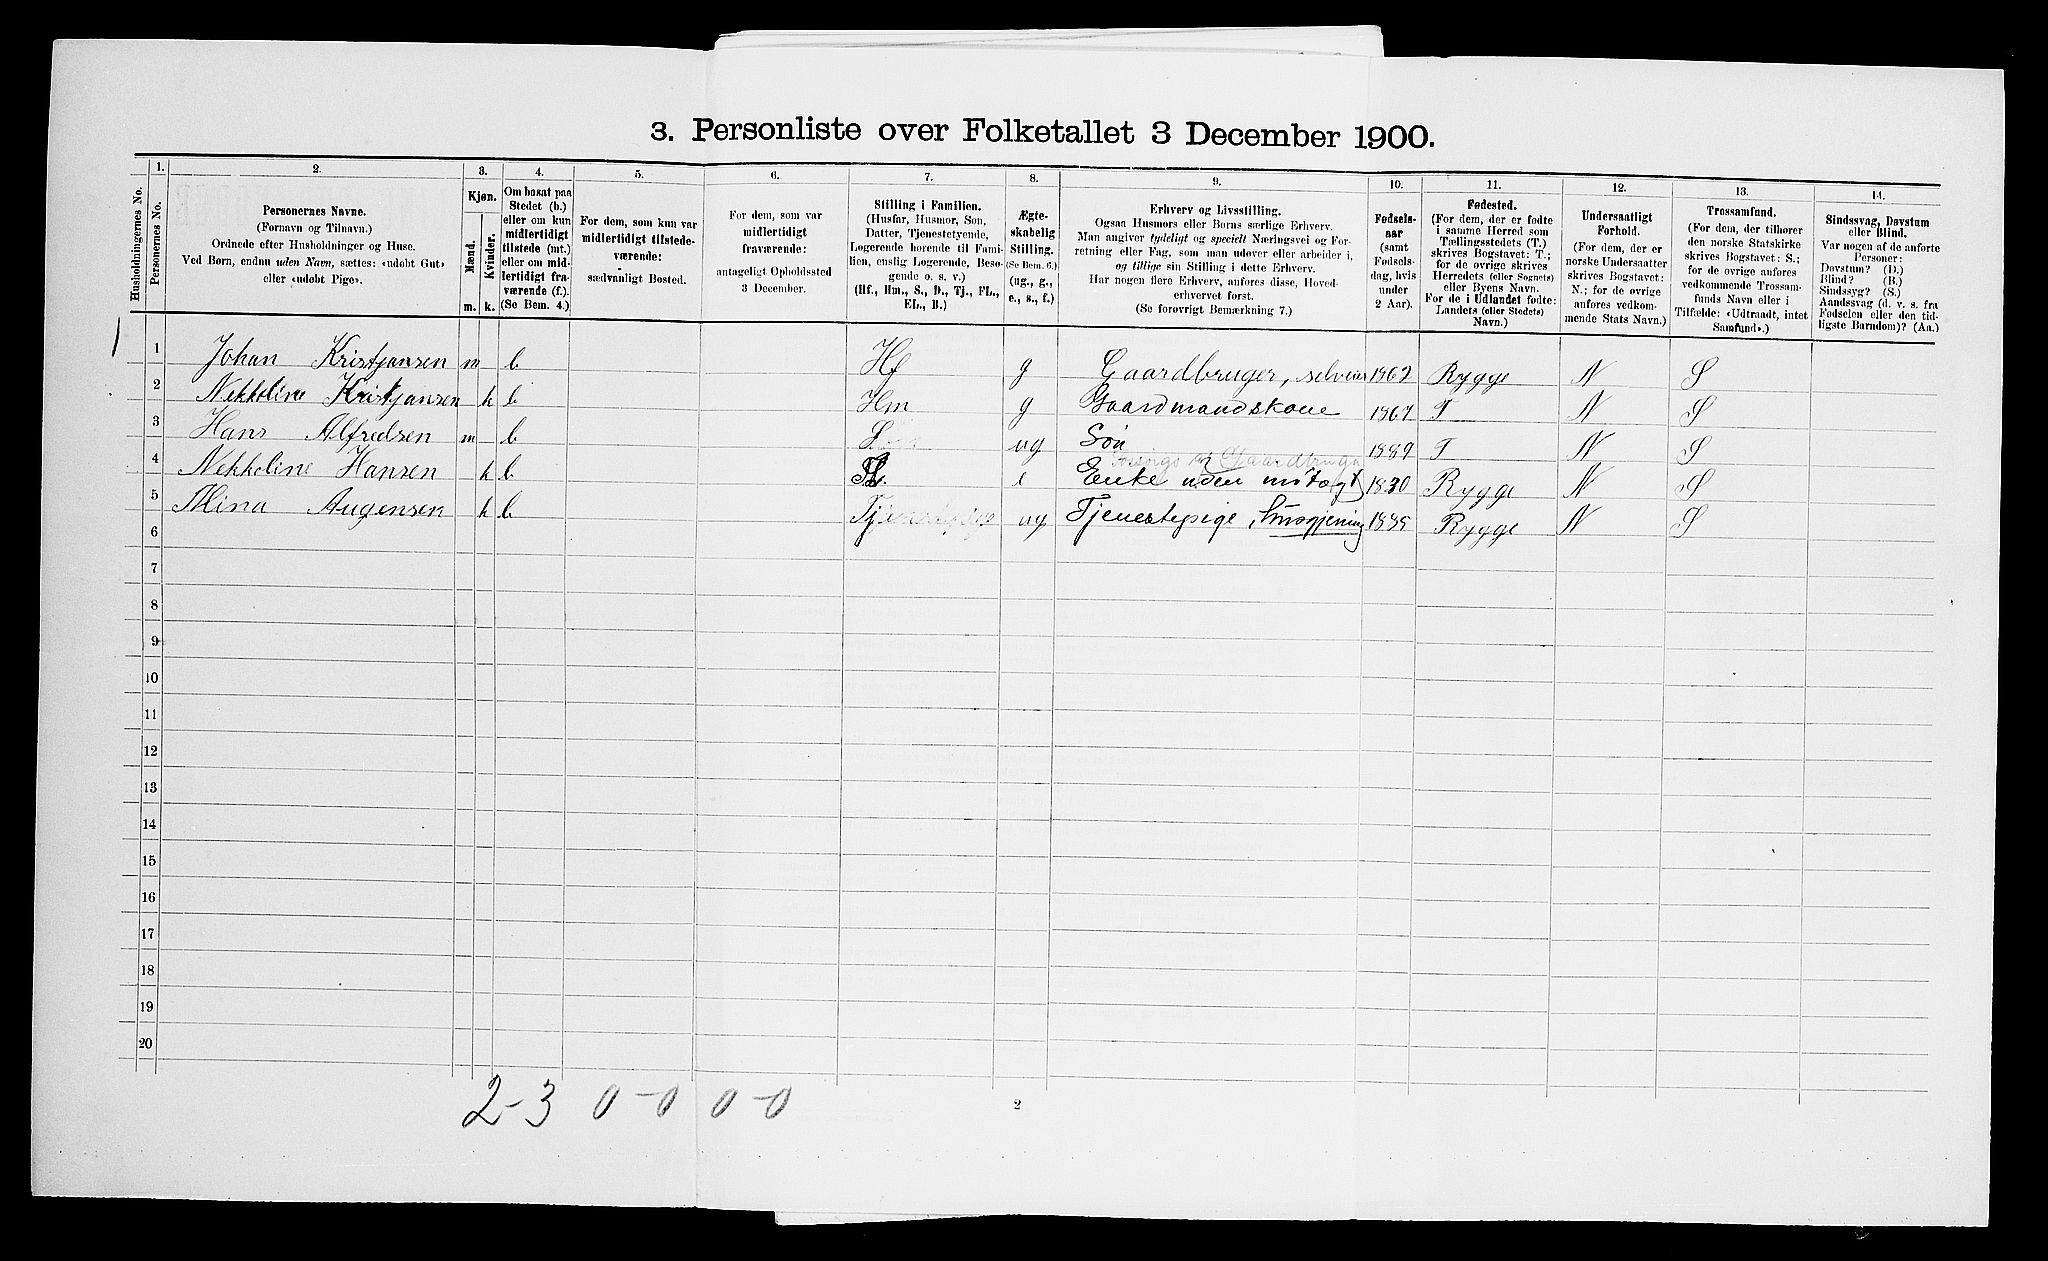 3. Personliste over Folketallet 3 December 1900.
Husholdningernes No.
1.
Personernes No.
2.
Personernes Navne.
(Fornavn og Tilnavn.)
Ordnede efter Husholdninger og Huse.
Ved Børn, endnu uden Navn, sættes: «udøbt Gut»
eller «udøbt Pige».
3.
Kjøn.
Mænd.
Kvinder.
m. k.
4.
Om bosat paa
Stedet (b.)
eller om kun
midlertidigt
tilstede (mt.)
eller om mid-
lertidigt fra-
værende (f.).
(Se Bem. 4.)
5.
For dem, som kun var
midlertidigt tilstede-
værende:
sædvanligt Bosted.
6.
For dem, som var
midlertidigt
fraværende:
antageligt Opholdssted
3 December.
7.
Stilling i Familien.
(Husfar, Husmor, Søn,
Datter, Tjenestetyende,
Logerende hørende til Fami-
lien, enslig Logerende, Besø-
gende o. s. v.)
(Hf., Hm., S., D., Tj., FL.,
EL., B.)
8.
Ægte-
skabelig
Stilling.
(Se Bem. 6.)
(ug., g.,
e., s., f.)
9.
Erhverv og Livsstilling.
Ogsaa Husmors eller Børns særlige Erhverv.
Man angiver tydeligt og specielt Næringsvei og For-
retning eller Fag, som man udøver eller arbeider i,
og tillige sin Stilling i dette Erhverv.
Har nogen flere Erhverv, anføres disse, Hoved-
erhvervet først.
(Se forøvrigt Bemærkning 7.)
10.
Fødsels-
aar
(samt
Fødsels-
dag, hvis
under
2 Aar).
11.
Fødested.
(For dem, der er fødte
i samme Herred som
Tællingsstedets (T.)
skrives Bogstavet: T.;
for de øvrige skrives
Herredets (eller Sognets)
eller Byens Navn.
For de i Udlandet fødte:
Landets (eller Stedets)
Navn.)
12.
Undersaatligt
Forhold.
(For dem, der er
norske Undersaatter
skrives Bogstavet:
N.; for de øvrige
anføres vedkom-
mende Stats Navn.)
13.
Trossamfund.
(For dem, der tilhører
den norske Statskirke
skrives Bogstavet: S.;
for de øvrige anføres
vedkommende Trossam-
funds Navn eller i
Tilfælde: «Udtraadt, intet
Samfund».)
14.
Sindssvag, Døvstum
eller Blind.
Var nogen af de anførte
Personer:
Døvstum? (D.)
Blind? (B.)
Sindssyg? (S.)
Aandssvag (d. v. s. fra
Fødselen eller den tid-
ligste Barndom)? (Aa.)
1 1 Johan Kristjansen m b Hf g Gaardbruger, selveier 1862 Rygge N S
2 Nekholine Kristjansen k b Hm g Gaardmandskone 1867 T N S
3 Hans Alfredsen m b S ug Søn 1889 T N S
4 Nekholine Hansen k b e Enke uden 1830 Rygge N S
5 Mina Augensen k b Tj ug Tjenestepige, Husgjerning Rygge N S
6
7
8
9
10
11
12
13
14
15
16
17
18
19
20
2-3 0-0 0-0
2